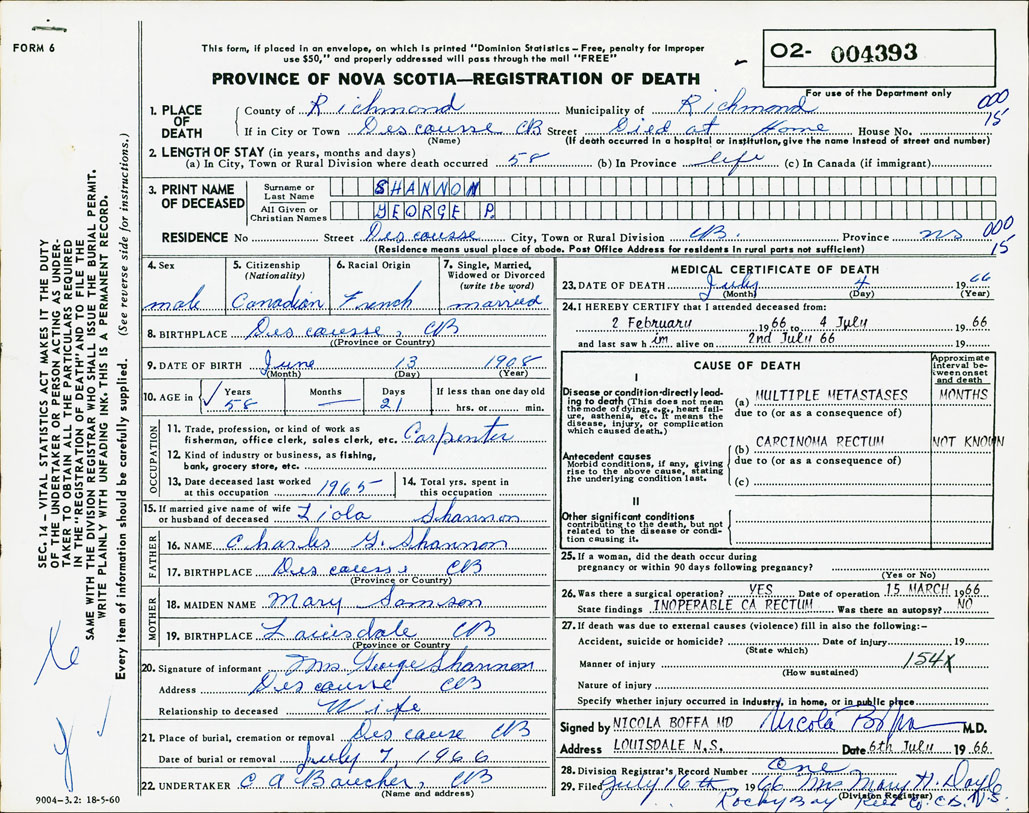 FORM 6
This form, if placed in an envelope, on which is printed "Dominion Statistics – Free, penalty for improper
use $50," and properly addressed will pass through the mail "FREE"
PROVINCE OF NOVA SCOTIA—REGISTRATION OF DEATH
02- 004393
For use of the Department only
000
15
1. PLACE OF DEATH
County of Richmond Municipality of Richmond
If in City or Town Descousse CB Street Died at Home House No.
(Name) (If death occurred in a hospital or institution, give the name instead of street and number)
2. LENGTH OF STAY (in years, months and days)
(a) In City, Town or Rural Division where death occurred 58 (b) In Province life (c) In Canada (if immigrant)
3. PRINT NAME OF DECEASED
Surname or Last Name SHANNON
All Given or Christian Names GEORGE P.
RESIDENCE No Street Descousse City, Town or Rural Division CB. Province NS
000
15
(Residence means usual place of abode. Post Office Address for residents in rural parts not sufficient)
4. Sex
male
5. Citizenship
(Nationality)
Canadian
6. Racial Origin
French
7. Single, Married,
Widowed or Divorced
(write the word)
married
8. BIRTHPLACE Descousse, CB
(Province or Country)
9. DATE OF BIRTH June 13 1908
(Month) (Day) (Year)
10. AGE in
Years
58
Months
—
Days
21
If less than one day old
hrs. or min.
OCCUPATION
11. Trade, profession, or kind of work as
fisherman, office clerk, sales clerk, etc. Carpenter
12. Kind of industry or business, as fishing,
bank, grocery store, etc.
13. Date deceased last worked
at this occupation 1965
14. Total yrs. spent in
this occupation
15. If married give name of wife
or husband of deceased Liola Shannon
FATHER
16. NAME Charles G. Shannon
17. BIRTHPLACE Descousse CB
(Province or Country)
MOTHER
18. MAIDEN NAME Mary Samson
19. BIRTHPLACE Louisdale CB
(Province or Country)
20. Signature of informant Mrs George Shannon
Address Descousse CB
Relationship to deceased Wife
21. Place of burial, cremation or removal Descouse CB
Date of burial or removal July 7, 1966
22. UNDERTAKER C A Boucher, CB
(Name and address)
MEDICAL CERTIFICATE OF DEATH
23. DATE OF DEATH July 4 1966
(Month) (Day) (Year)
24. I HEREBY CERTIFY that I attended deceased from:
2 February 1966 to 4 July 1966
and last saw him alive on 2nd July 66 19
CAUSE OF DEATH
Approximate
interval be-
tween onset
and death
I
Disease or condition directly lead-
ing to death (This does not mean
the mode of dying, e.g., heart fail-
ure, asthenia, etc. It means the
disease, injury, or complication
which caused death.)
(a) MULTIPLE METASTASES MONTHS
due to (or as a consequence of)
Antecedent causes
Morbid conditions, if any, giving
rise to the above cause, stating
the underlying condition last.
(b) CARCINOMA RECTUM NOT KNOWN
due to (or as a consequence of)
(c)
II
Other significant conditions
contributing to the death, but not
related to the disease or condi-
tion causing it.
25. If a woman, did the death occur during
pregnancy or within 90 days following pregnancy?
(Yes or No)
26. Was there a surgical operation? YES Date of operation 15 MARCH 1966
State findings INOPERABLE CA RECTUM Was there an autopsy? NO
27. If death was due to external causes (violence) fill in also the following:-
Accident, suicide or homicide? Date of injury 19
(State which)
Manner of injury 154X
(How sustained)
Nature of injury
Specify whether injury occurred in industry, in home, or in public place
Signed by NICOLA BOFFA MD Nicola Boffa M.D.
Address LOUISDALE N.S. Date 6th July 1966
28. Division Registrar's Record Number One
29. Filed July 16th 1966 Mrs Mary H. Doyle
(Division Registrar)
Rocky Bay Rich Co. C.B. N.S.
SEC. 14 – VITAL STATISTICS ACT MAKES IT THE DUTY
OF THE UNDERTAKER OR PERSON ACTING AS UNDER-
TAKER TO OBTAIN ALL THE PARTICULARS REQUIRED
IN THE "REGISTRATION OF DEATH" AND TO FILE THE
SAME WITH THE DIVISION REGISTRAR WHO SHALL ISSUE THE BURIAL PERMIT.
WRITE PLAINLY WITH UNFADING INK. THIS IS A PERMANENT RECORD.
Every item of information should be carefully supplied. (See reverse side for instructions.)
9004-3.2: 18-5-60